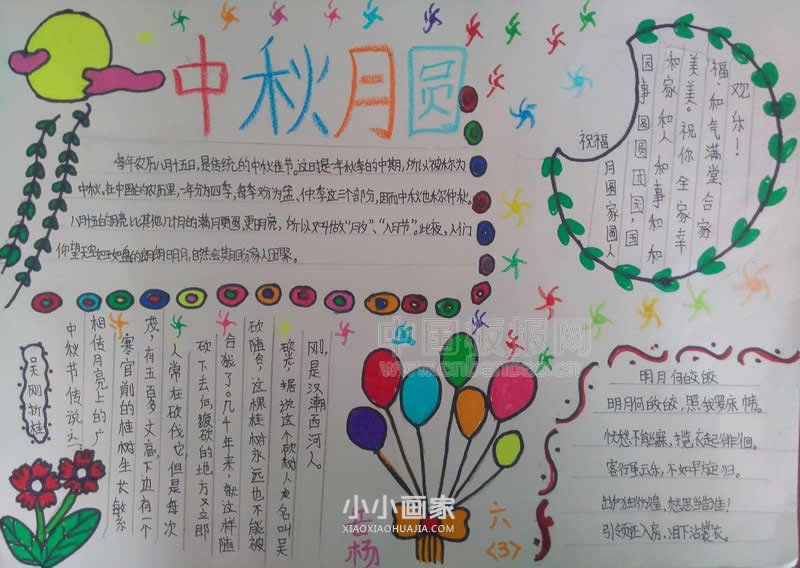 中秋月圆
每年农历八月十五日,是传统的中秋佳节。这时是一年秋季的中期,所以被称为
中秋。在中国的农历里,一年分为四季,每季又分为孟、仲、季三个部分,因而中秋也称仲秋。
八月十五的月亮比其他几个月的满月更圆,更明亮,所以又叫做“月夕”、“八月节”。此夜,人们
仰望天空如玉如盘的朗朗明月,自然会期盼家人团聚。
祝福
月圆家圆人
圆事圆圆团园,国
和家和人和事和和
美美。祝你全家幸
福、和气满堂、合家
欢乐!
吴刚折桂
中秋节传说之
相传月亮上的广
寒宫前的桂树生长繁
茂,有五百多丈高,下边有一个
人常在砍伐它,但是每次
砍下去后,被砍的地方又立即
合拢了。几千年来,就这样随
砍随合,这棵桂树永远也不能被
砍光。据说这个砍树人名叫吴
刚,是汉潮西河人。
明月何皎皎
明月何皎皎,照我罗床帏。
忧愁不能寐,揽衣起徘徊。
客行虽云乐,不如早旋归。
出户独彷徨,愁思当告谁!
引领还入房,泪下沾裳衣。
杨
六
<3>
中国板报网
www.cnbanbao.cn
小小画家
XIAOXIAOHUAJIA.COM